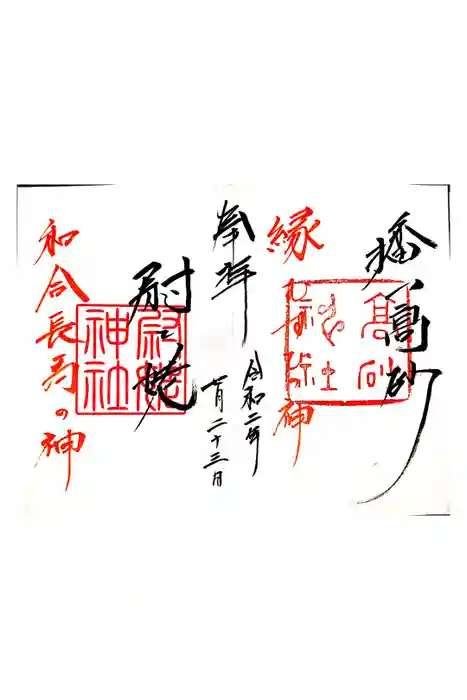 播州高砂
縁むすびの神
奉拝
令和二年
十一月二十三日
尉と姥
和合長寿の神
高砂神社
尉姥神社